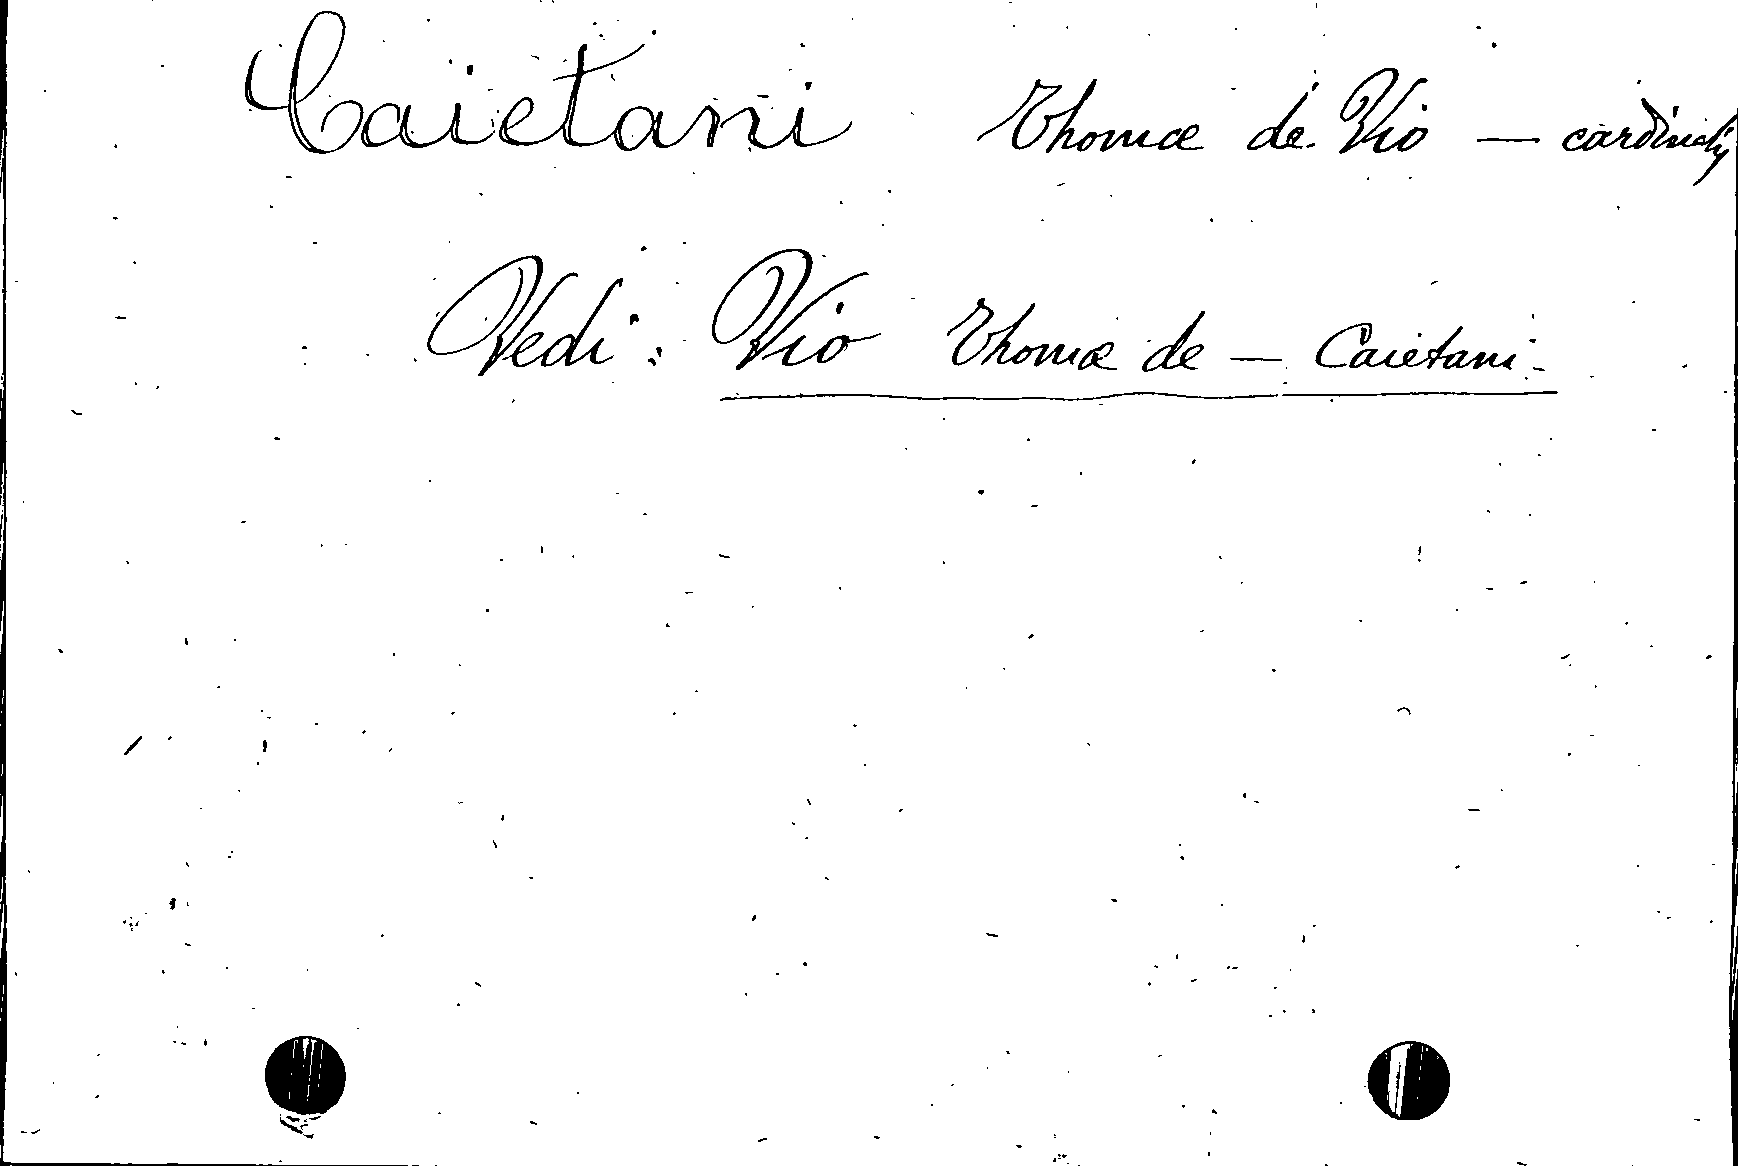 Caietani Thomae de Vio — cardinalis
Vedi: Vio Thomae de — Caietani